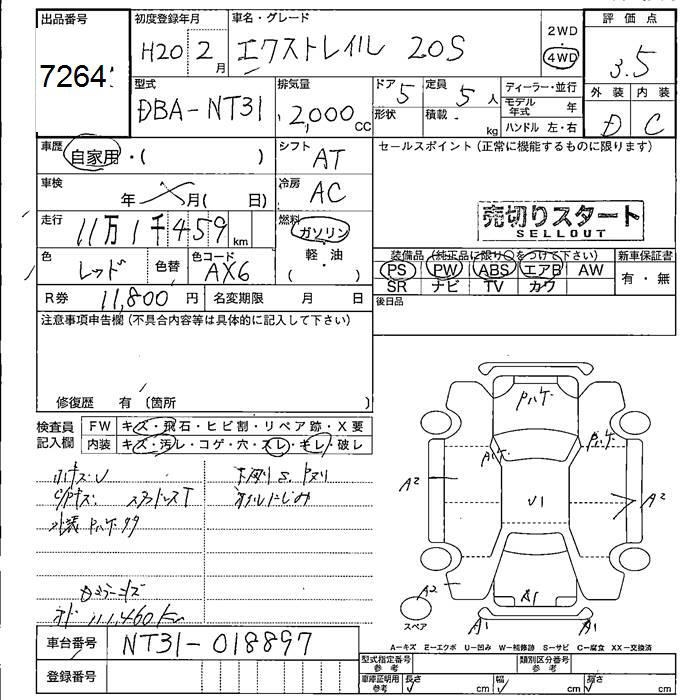 出品番号 初度登録年月 車名・グレード 評価点
7264
H20 2月 エクストレイル 20S 2WD 4WD 3.5
型式 排気量 ドア 定員 ディーラー・並行 外装 内装
DBA-NT31 2,000cc 5 5人 モデル年式 年 D C
形状 積載 kg ハンドル 左・右
車歴 自家用・( ) シフト AT セールスポイント (正常に機能するものに限ります)
車検 年 月( 日) 冷房 AC
走行 11万1千459km 燃料 ガソリン 売切りスタート
SELLOUT
軽・油
( )
色 レッド 色替 色コード AX6 装備品 (純正品に限り○をつけて下さい) 新車保証書
PS PW ABS エアB AW 有・無
SR ナビ TV カワ
R券 11,800円 名変期限 月 日 後日品
注意事項申告欄 (不具合内容等は具体的に記入して下さい)
修復歴 有 (箇所 )
検査員記入欄 FW キズ・飛石・ヒビ割・リペア跡・X要
内装 キズ・汚レ・コゲ・穴・スレ・キレ・破レ
下回りS.
オイルにじみ
外装
111,460km
A2
U1
A2
A2
A1
A1
スペア
車台番号 NT31-018897
A-キズ E-エクボ U-凹み W-補修跡 S-サビ C-腐食 XX-交換済
登録番号
型式指定番号 参考 類別区分番号 参考
車庫証明用 参考 長さ cm 幅 cm 高さ cm